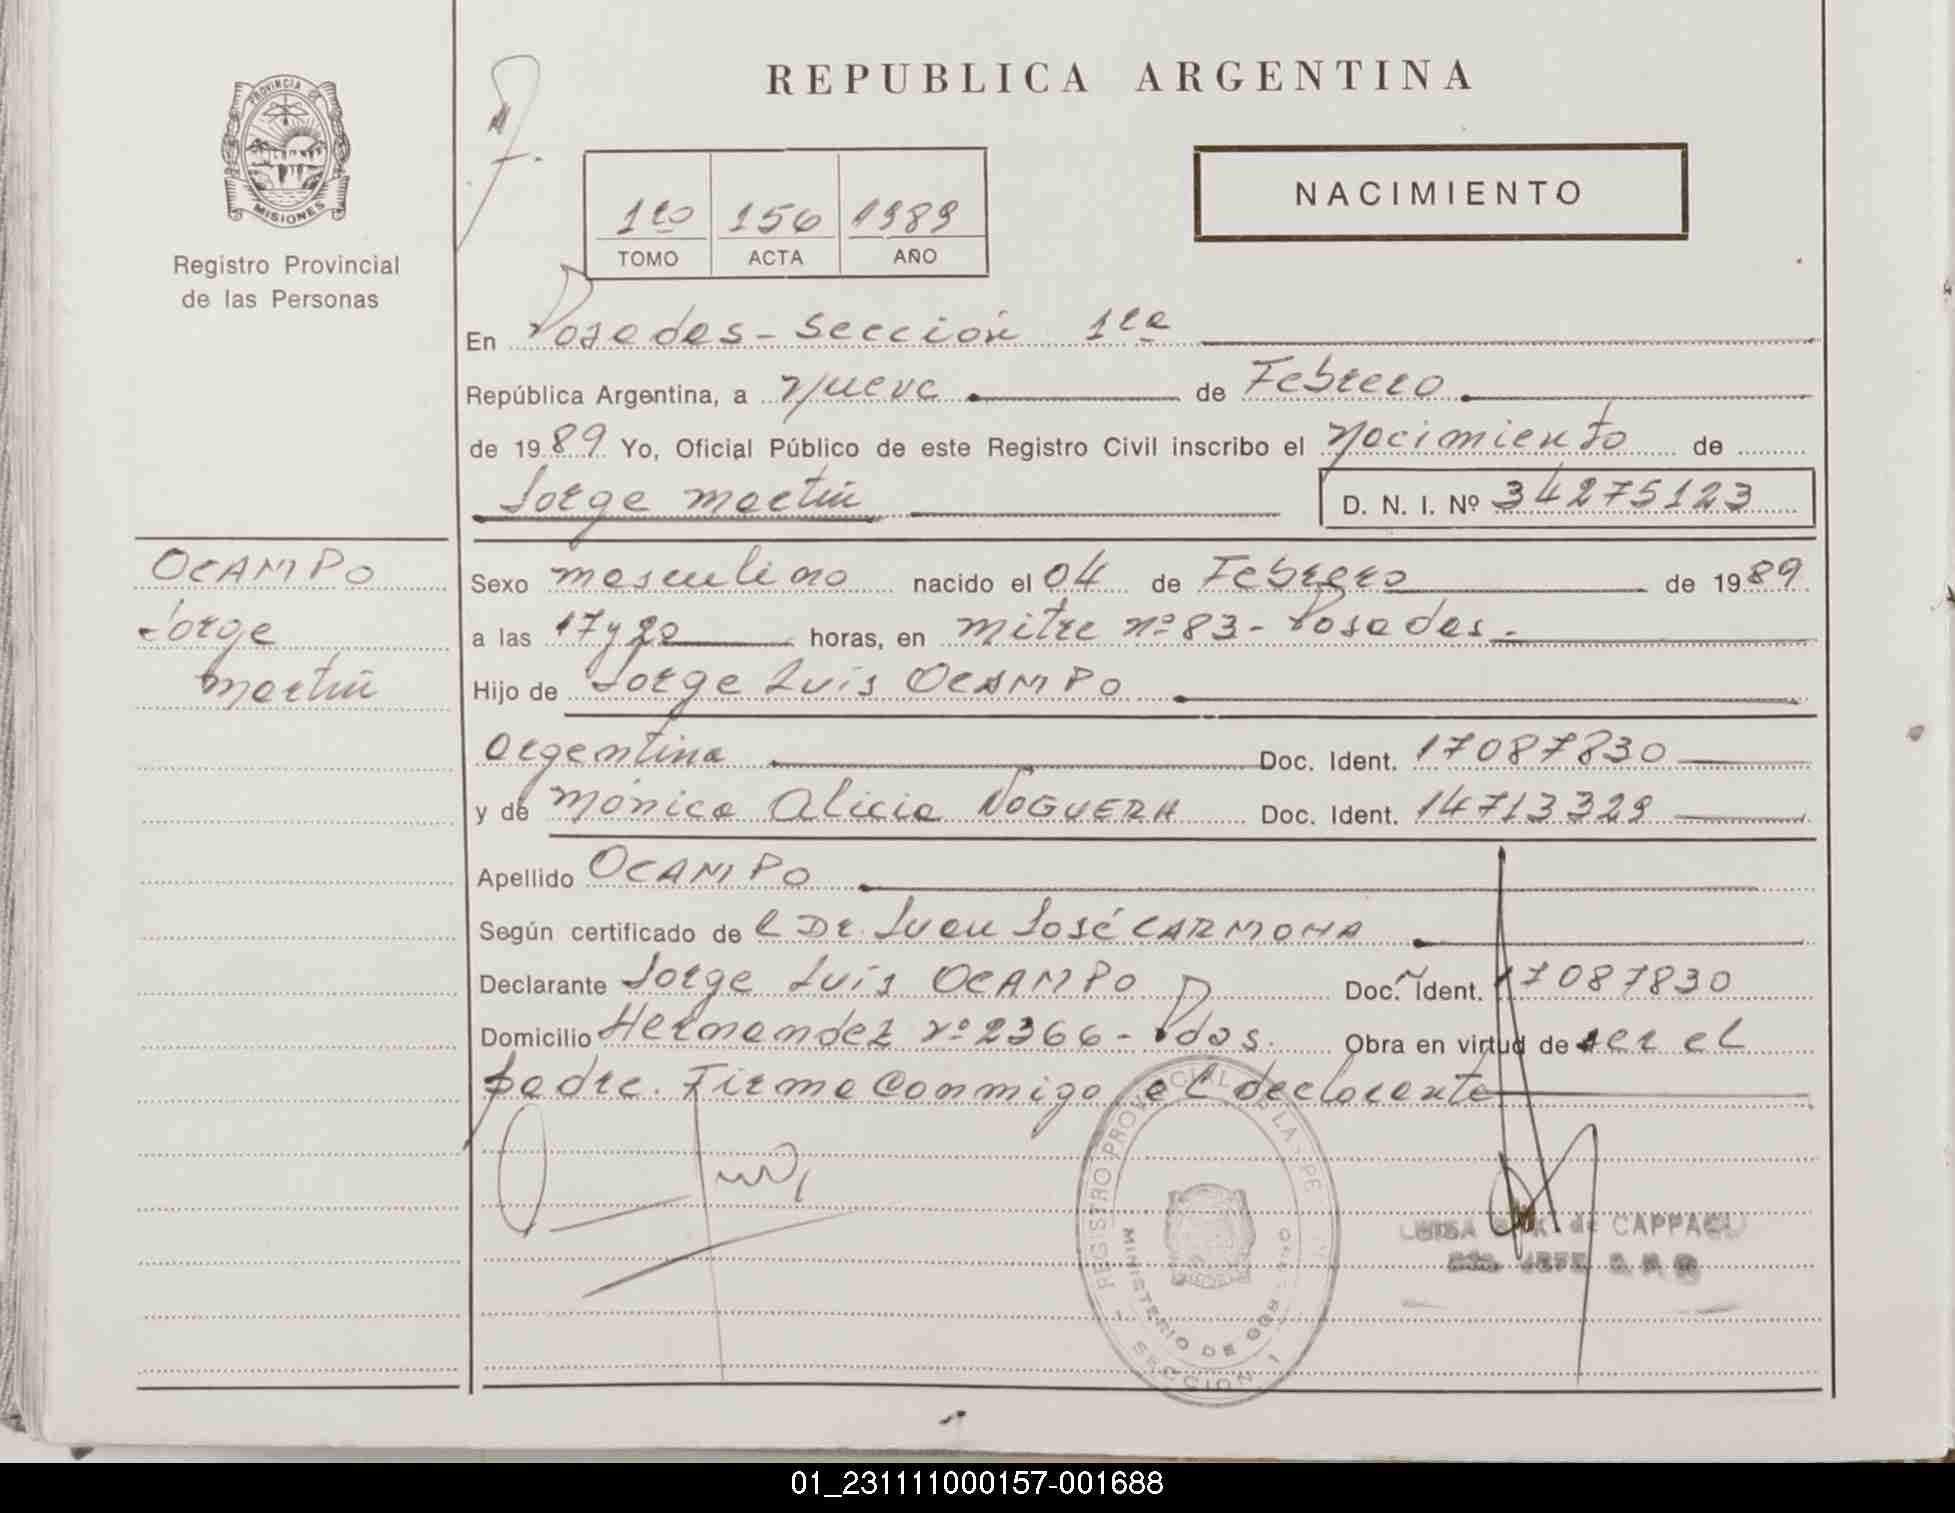 PROVINCIA DE
MISIONES
Registro Provincial
de las Personas
OCAMPO
Jorge
Martín
REPUBLICA ARGENTINA
NACIMIENTO
1ro 156 1989
TOMO ACTA AÑO
En Posadas - Sección 1ra
República Argentina, a nueve de Febrero
de 1989 Yo, Oficial Público de este Registro Civil inscribo el nacimiento de
Jorge Martín D. N. I. Nº 34275123
Sexo masculino nacido el 04 de Febrero de 1989
a las 17 y 20 horas, en Mitre nº 83 - Posadas.-
Hijo de Jorge Luis OCAMPO
Argentina Doc. Ident. 17087830
y de Mónica Alicia NOGUERA Doc. Ident. 14713329
Apellido OCAMPO
Según certificado del Dr. Juan José CARMONA
Declarante Jorge Luis OCAMPO Doc. Ident. 17087830
Domicilio Hernandez nº 2366 - Pdas. Obra en virtud de ser el
padre. Firma conmigo el declarante
REGISTRO PROVINCIAL DE LAS PE
MINISTERIO DE GOBIERNO
SECCION 1
de CAPPA
JEFE
01_231111000157-001688